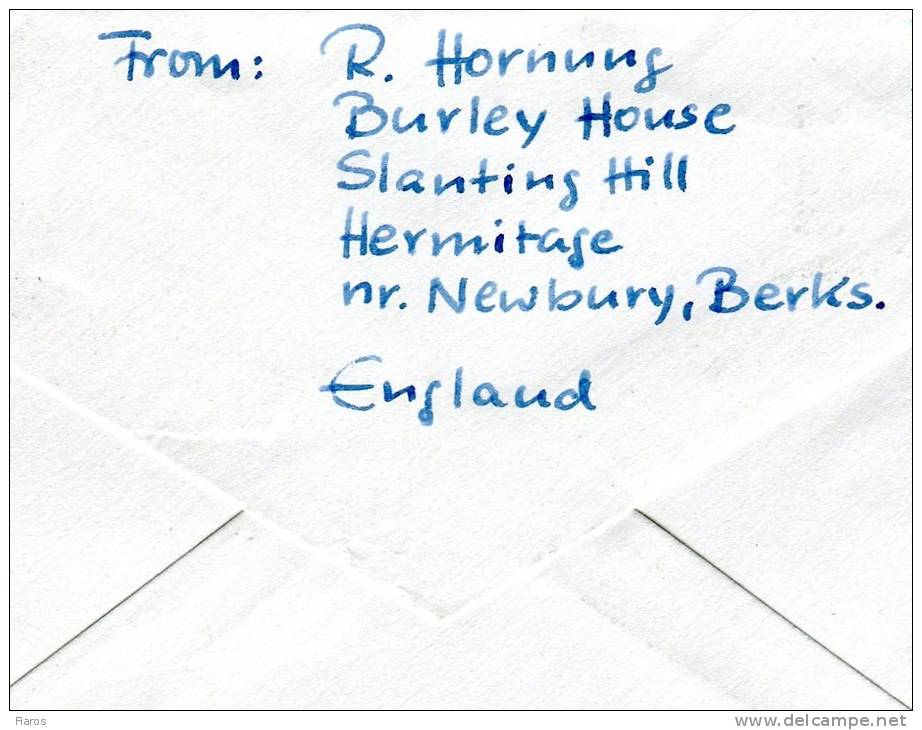 From: R. Hornung
Burley House
Slanting Hill
Hermitage
nr. Newbury, Berks.
England
Raros
www.delcampe.net